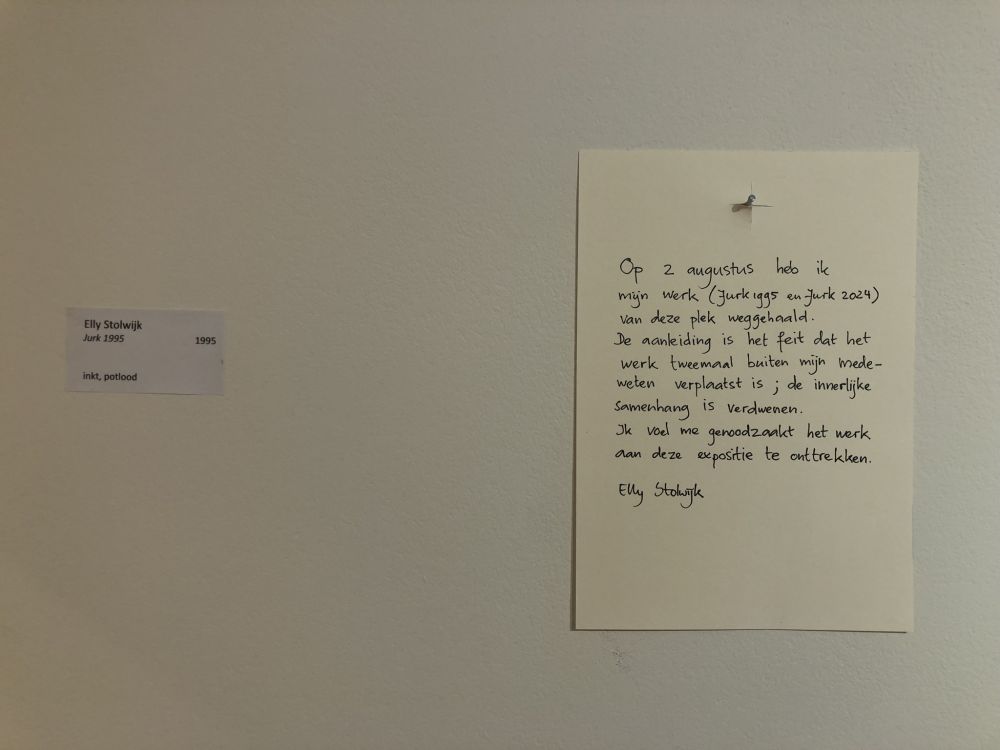 Elly Stolwijk
Jurk 1995 1995
inkt, potlood
Op 2 augustus heb ik
mijn werk (Jurk 1995 en Jurk 2024)
van deze plek weggehaald.
De aanleiding is het feit dat het
werk tweemaal buiten mijn mede-
weten verplaatst is ; de innerlijke
samenhang is verdwenen.
Ik voel me genoodzaakt het werk
aan deze expositie te onttrekken.
Elly Stolwijk